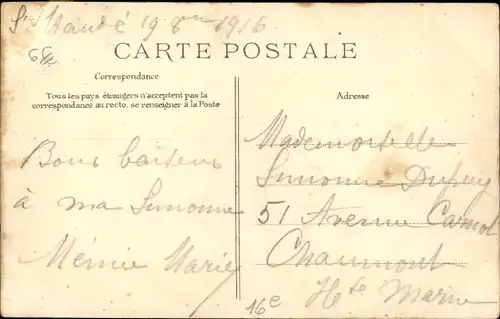 St Mandé 19 8bre 1916
CARTE POSTALE
Correspondance
Tous les pays étrangers n'acceptent pas la
correspondance au recto, se renseigner à la Poste
Adresse
Bons baisers
à ma Simonne
Mémée Marie
Mademoiselle
Simonne Dupuy
51 Avenue Carnot
Chaumont
Hte Marne
16e